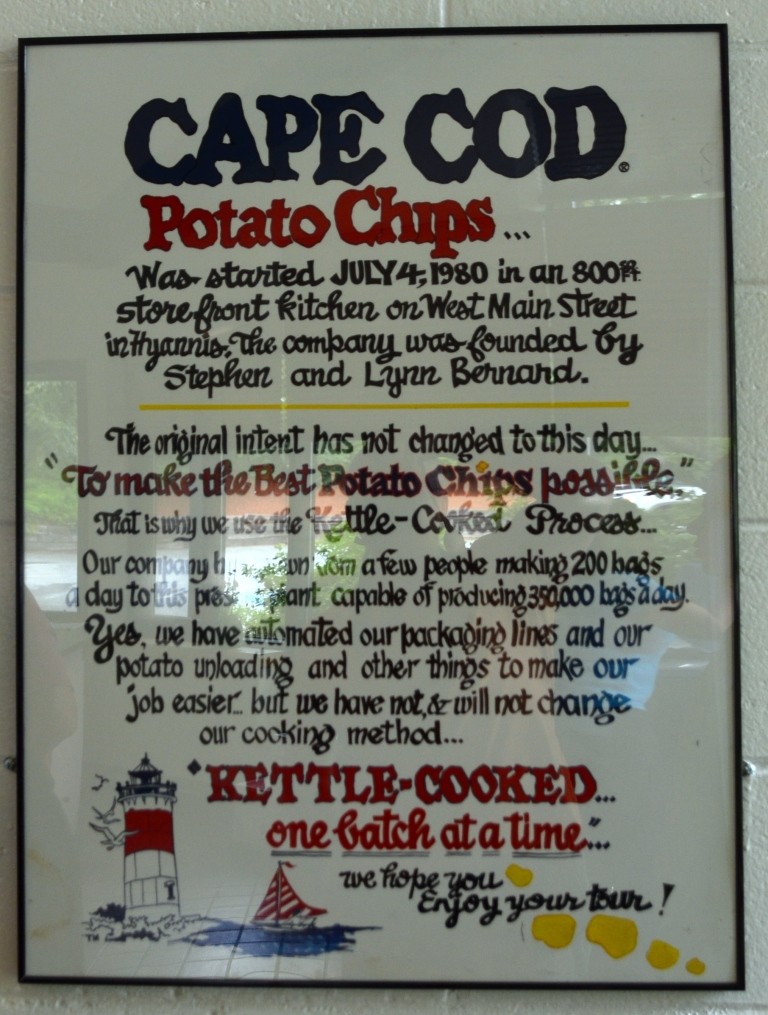 CAPE COD®
Potato Chips...
Was started JULY 4, 1980 in an 800
storefront kitchen on West Main Street
in Hyannis. The company was founded by
Stephen and Lynn Bernard.
The original intent has not changed to this day...
"To make the Best Potato Chips possible."
That is why we use the Kettle-Cooked Process...
Our company from a few people making 200 bags
a day to this plant capable of producing 350,000 bags a day.
Yes, we have automated our packaging lines and our
potato unloading and other things to make our
job easier... but we have not, & will not change
our cooking method...
"KETTLE-COOKED...
one batch at a time"...
we hope you
Enjoy your tour!
TM